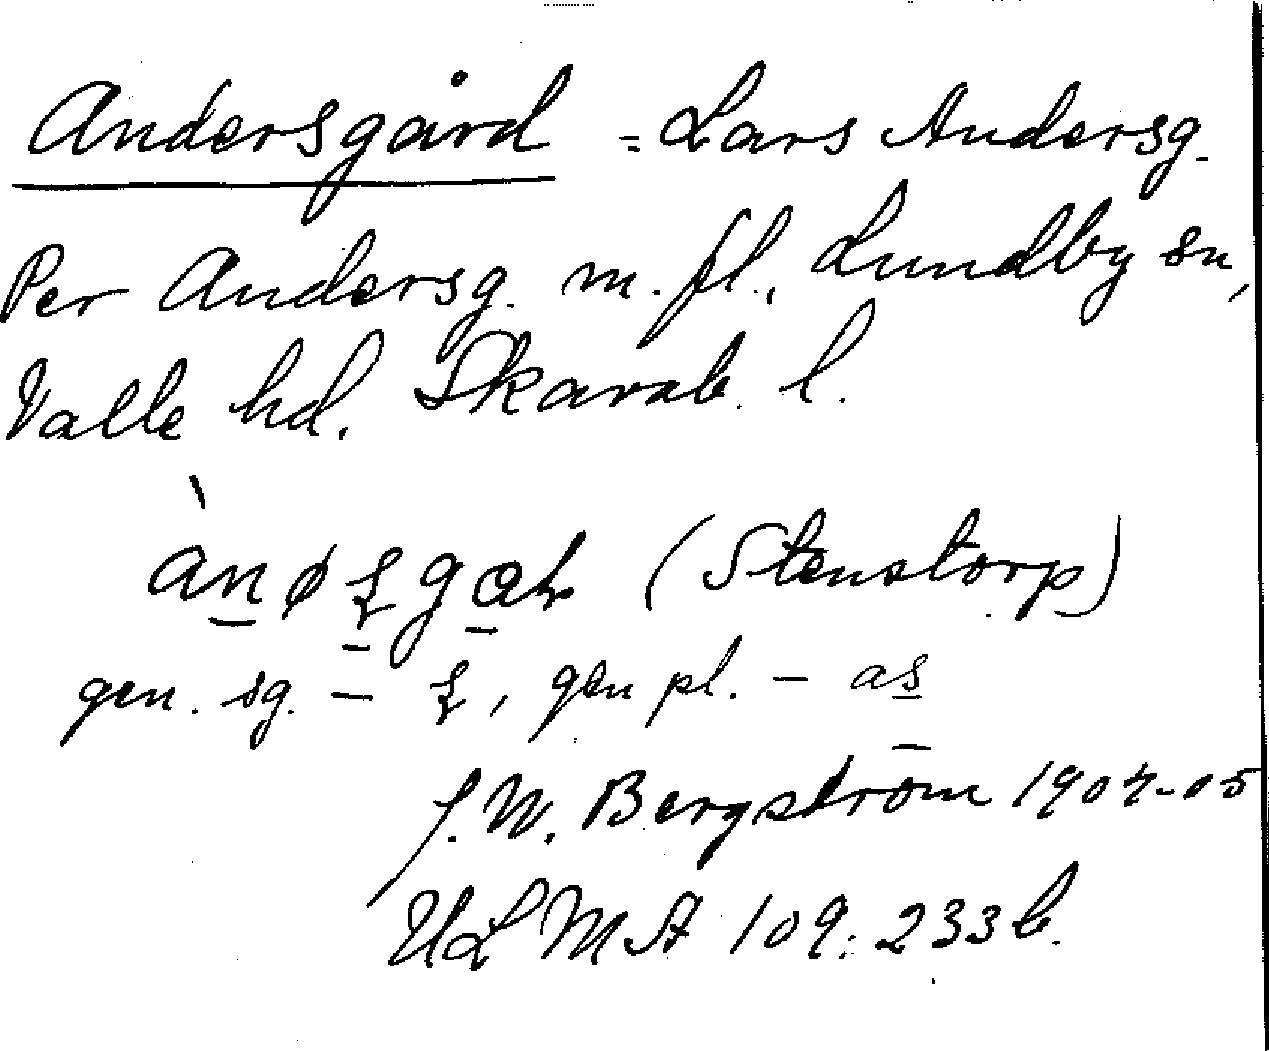 Andersgård = Lars Andersg.
Per Andersg. m. fl., Lundby sn,
Valle hd. Skarab. l.
(Stenstorp)
gen. sg. – , gen pl. – as
J. W. Bergström 1904-05
ULMA 109: 233 b.